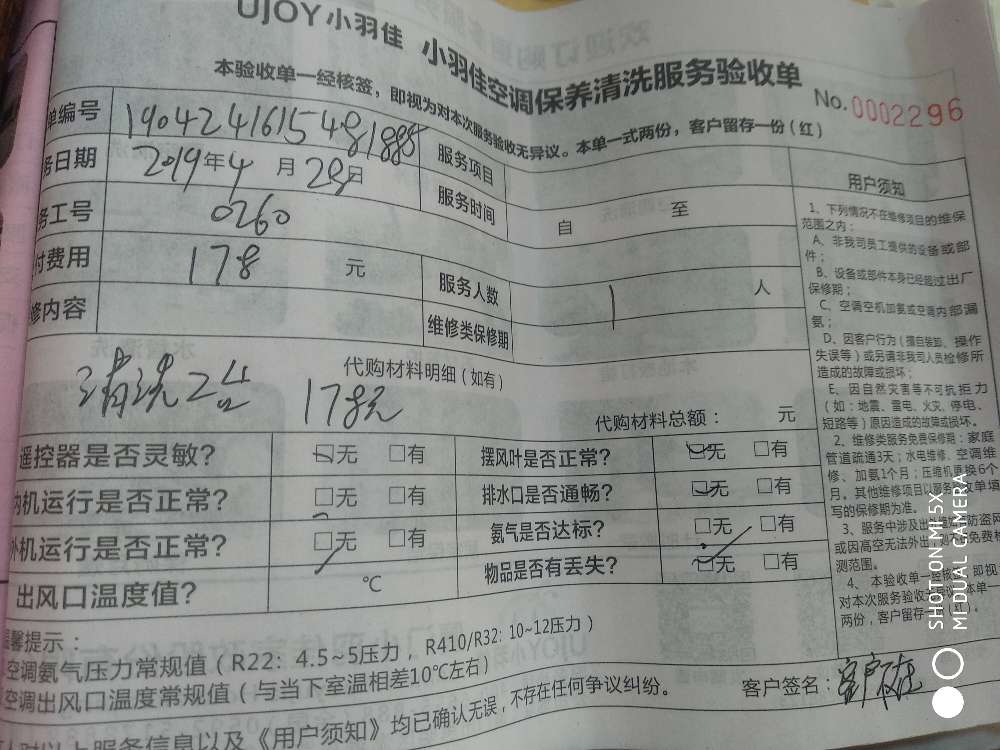 UJOY小羽佳 小羽佳空调保养清洗服务验收单
本验收单一经核签，即视为对本次服务验收无异议。本单一式两份，客户留存一份（红）
No.0002296
单编号 1904241615481888
服务项目
务日期 2019年4月28日
服务时间 自 至
务工号 0260
付费用 178 元
服务人数 1 人
修内容
维修类保修期
代购材料明细（如有）
清洗2台 178元
代购材料总额： 元
遥控器是否灵敏？ □无 □有 摆风叶是否正常？ □无 □有
内机运行是否正常？ □无 □有 排水口是否通畅？ □无 □有
外机运行是否正常？ □无 □有 氨气是否达标？ □无 □有
出风口温度值？ ℃ 物品是否有丢失？ □无 □有
温馨提示：
空调氨气压力常规值（R22：4.5~5压力，R410/R32: 10~12压力）
空调出风口温度常规值（与当下室温相差10℃左右）
对以上服务信息以及《用户须知》均已确认无误，不存在任何争议纠纷。
客户签名：客户不在
用户须知
1、下列情况不在维修项目的维保
范围之内：
A、非我司员工提供的设备或部
件；
B、设备或部件本身已经超过出厂
保修期；
C、空调空机加氨或空调内部漏
氨；
D、因客户行为（擅自装卸、操作
失误等）或另请非我司人员检修所
造成的故障或损坏；
E、因自然灾害等不可抗拒力
（如：地震、雷电、火灾、停电、
短路等）原因造成的故障或损坏。
2、维修类服务免费保修期：家庭
管道疏通3天；水电维修、空调维
修、加氨1个月；压缩机更换6个
月。其他维修项目以服务验收单填
写的保修期为准。
3、服务中涉及出
防盗网
或因高空无法外出
免费
测范围。
4、本验收单一经核
即视
对本次服务验收
本单一
两份，客户留存一份（红）。
SHOT ON MI 5X
MI DUAL CAMERA